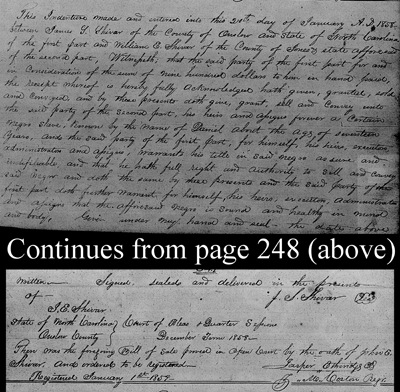 This Indenture made and entered into this 20th day of January A.D. 1858.
between James S. Shivar of the County of Onslow and State of North Carolina
of the first part and William E. Shivar of the County of Jones & state aforesaid
of the second part, Witnesseth, that the said party of the first part for and
in Consideration of the sum of Nine hundred dollars to him in hand paid,
the receipt whereof is hereby fully Acknowledged hath given, granted, sold
and Conveyed and by these presents doth give, grant, sell and Convey unto
the said party of the second part, his heirs and assigns forever a Certain
Negro Slave, Known by the Name of Daniel about the age of seventeen
Years, and the said party of the first part, for himself, his heirs, executors,
administrators and assigns Warrants his title in Said negro as secure and
indefeasible, and that he hath full right and Authority to Sell and Convey
said Negro and doth the same by these presents and the Said party of the
first part doth further Warrant for himself, his heirs, executors, administrators
and assigns that the afforesaid Negro is Sound and healthy in mind
and body, Given under my hand and seal the date above
Continues from page 248 (above)
Written Signed, sealed and delivered in the presents
of J. S. Shivar
S. E. Shivar
State of North Carolina Court of Pleas & Quarter Sessions
Onslow County December Term 1858
Then was the foregoing Bill of Sale proved in Open Court by the oath of John E.
Shivar and ordered to be registered. Jasper
Registered January 1st 1859